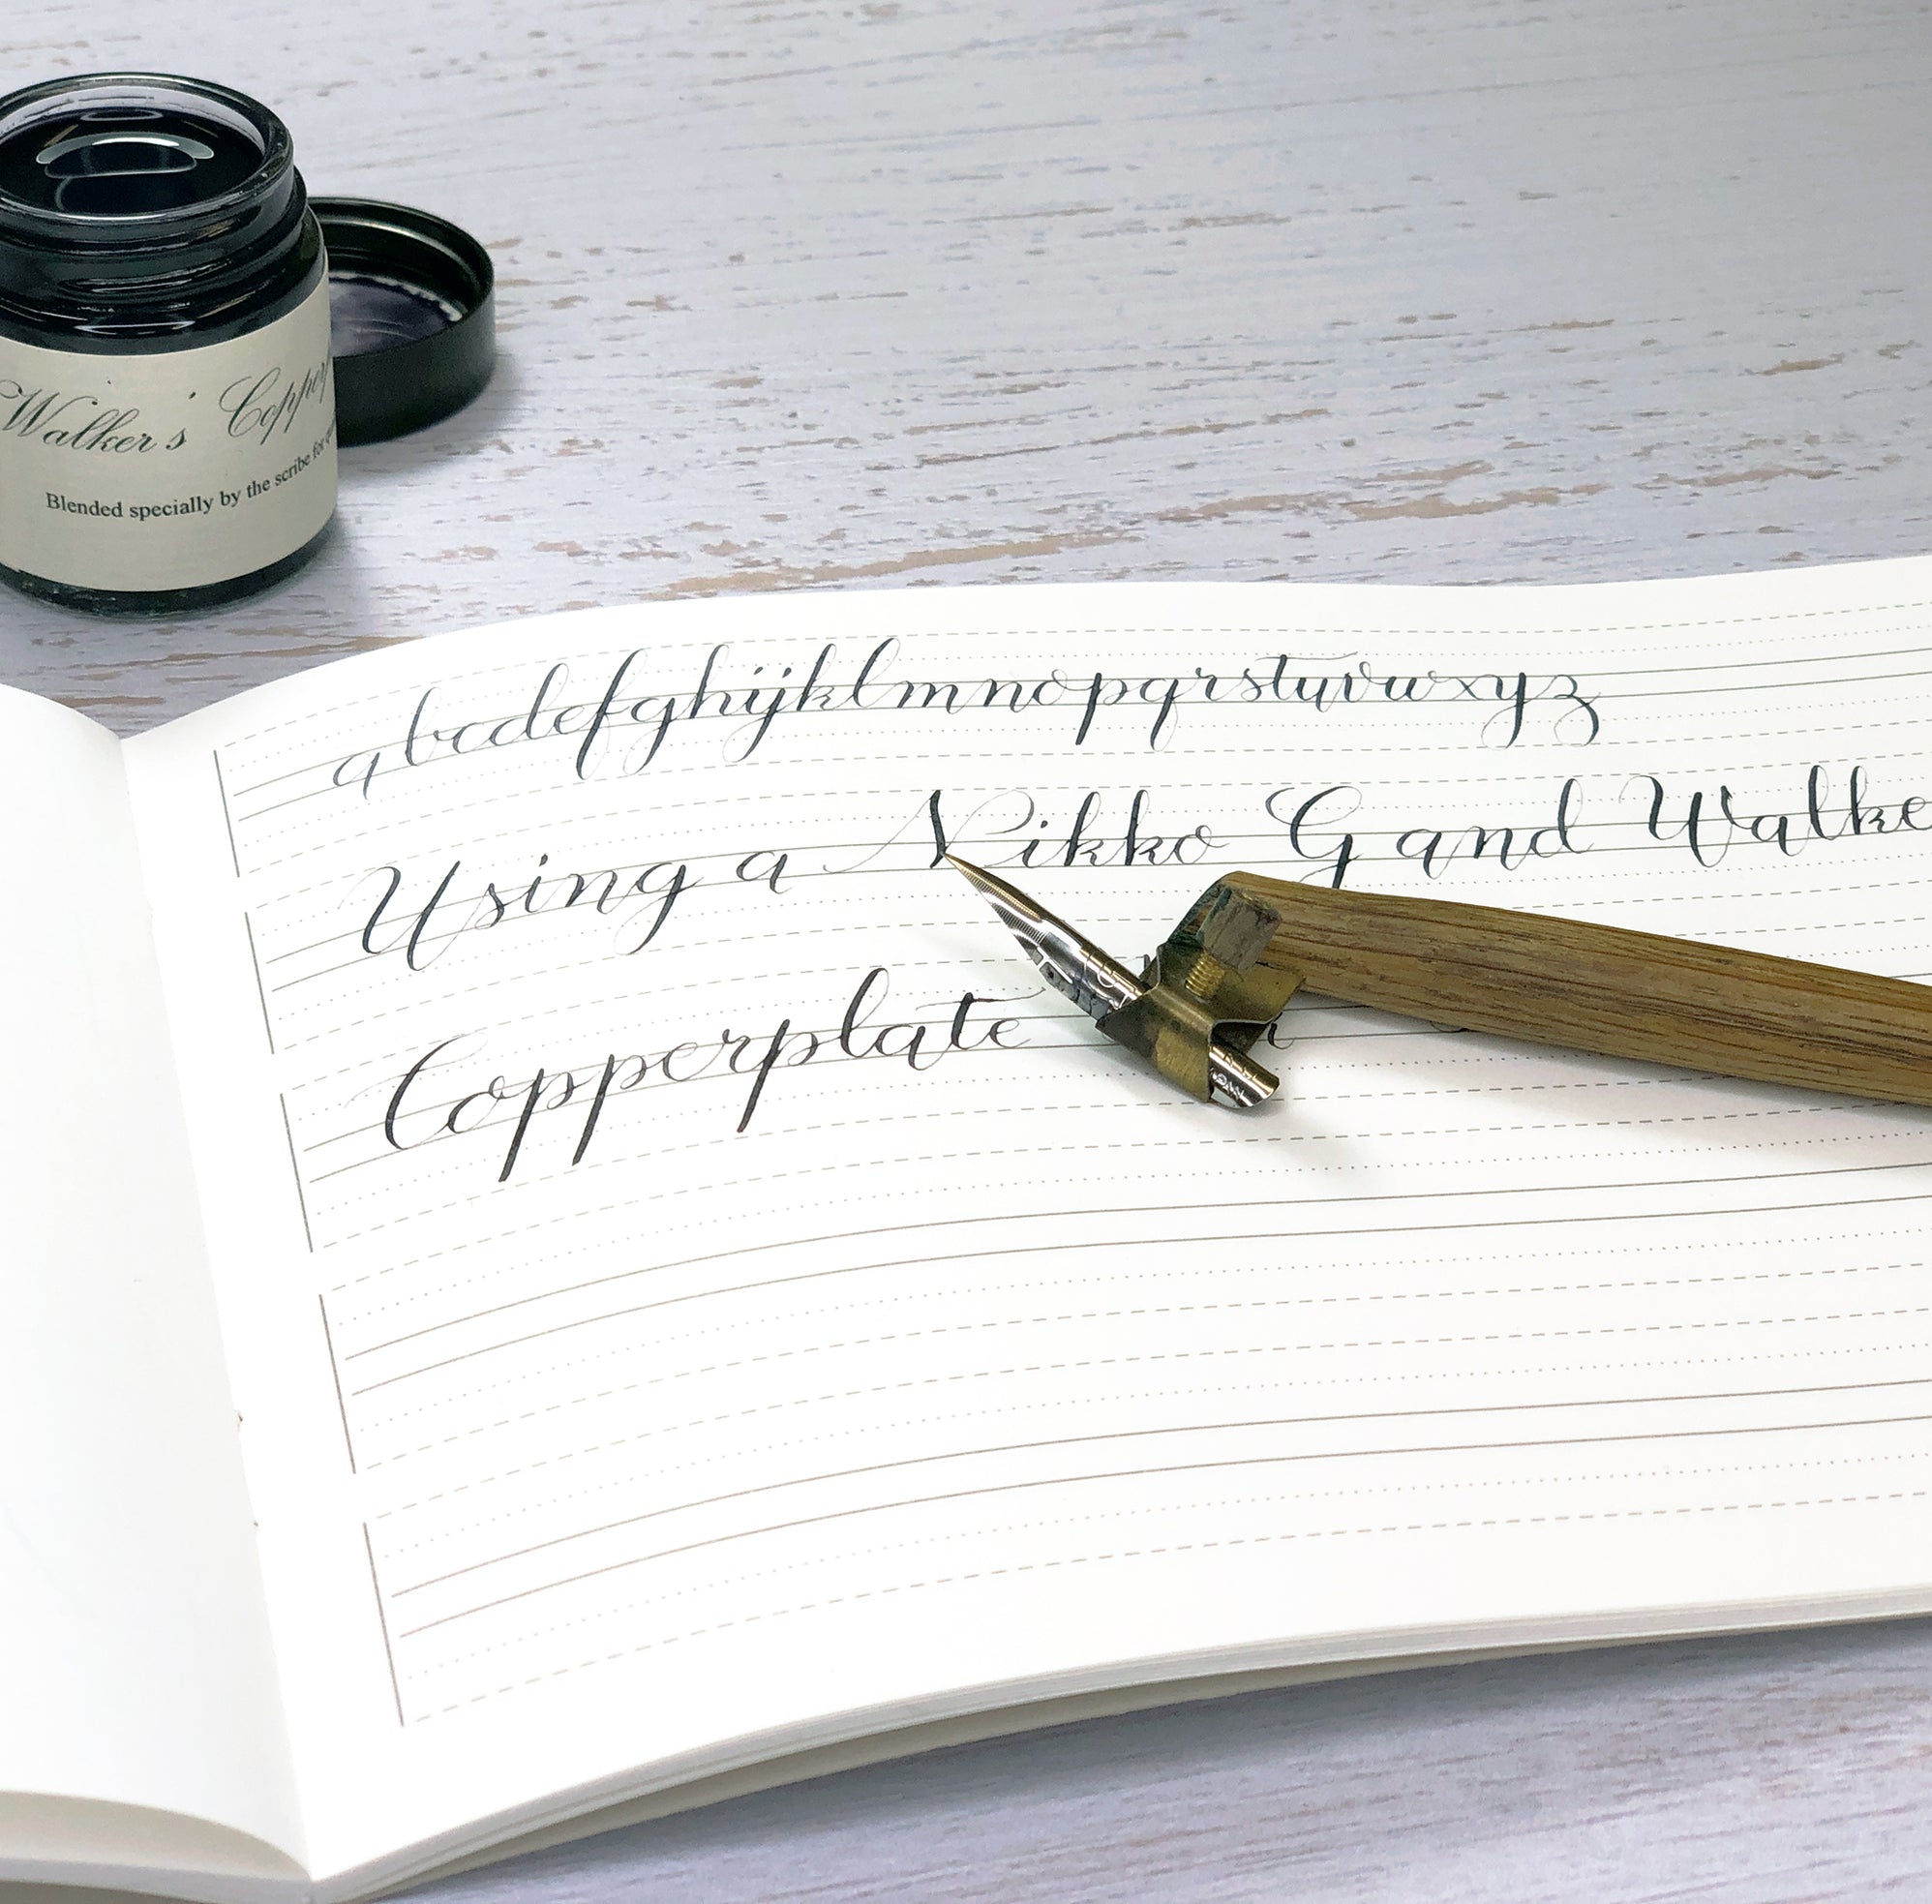 Walker's Copper
Blended specially by the scribe for
abcdefghijklmnopqrstuvwxyz
Using a Nikko G and Walke
Copperplate